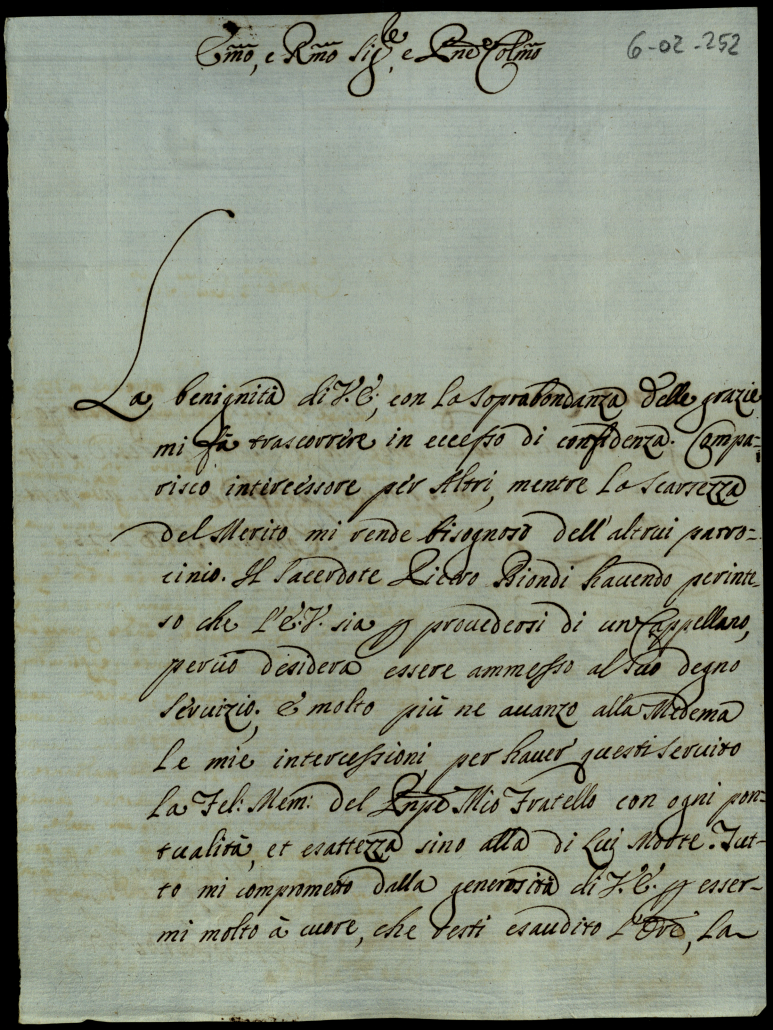 Emo, e Rmo Sigre, e Pne Colmo
6-02-252
La benignità di V.E., con la soprabondanza delle grazie
mi fà trascorrere in eccesso di confidenza. Compa=
risco intercessore per Altri, mentre la scarsezza
del Merito mi rende bisognoso dell'altrui patro=
cinio. Il Sacerdote Pietro Biondi havendo perinte=
so che l'E.V. sia p provedersi di un Cappellano,
perciò desidera essere ammesso al suo degno
servizio; E molto più ne avanzo alla Medema
le mie intercessioni, per haver questi servito
la Fel: Mem: del Pnpe Mio Fratello con ogni pon=
tualità, et esattezza sino alla di Lui Morte. Tut=
to mi comprometto dalla generosità di V.E. p esser=
mi molto à cuore, che resti esaudito l'Ore, la